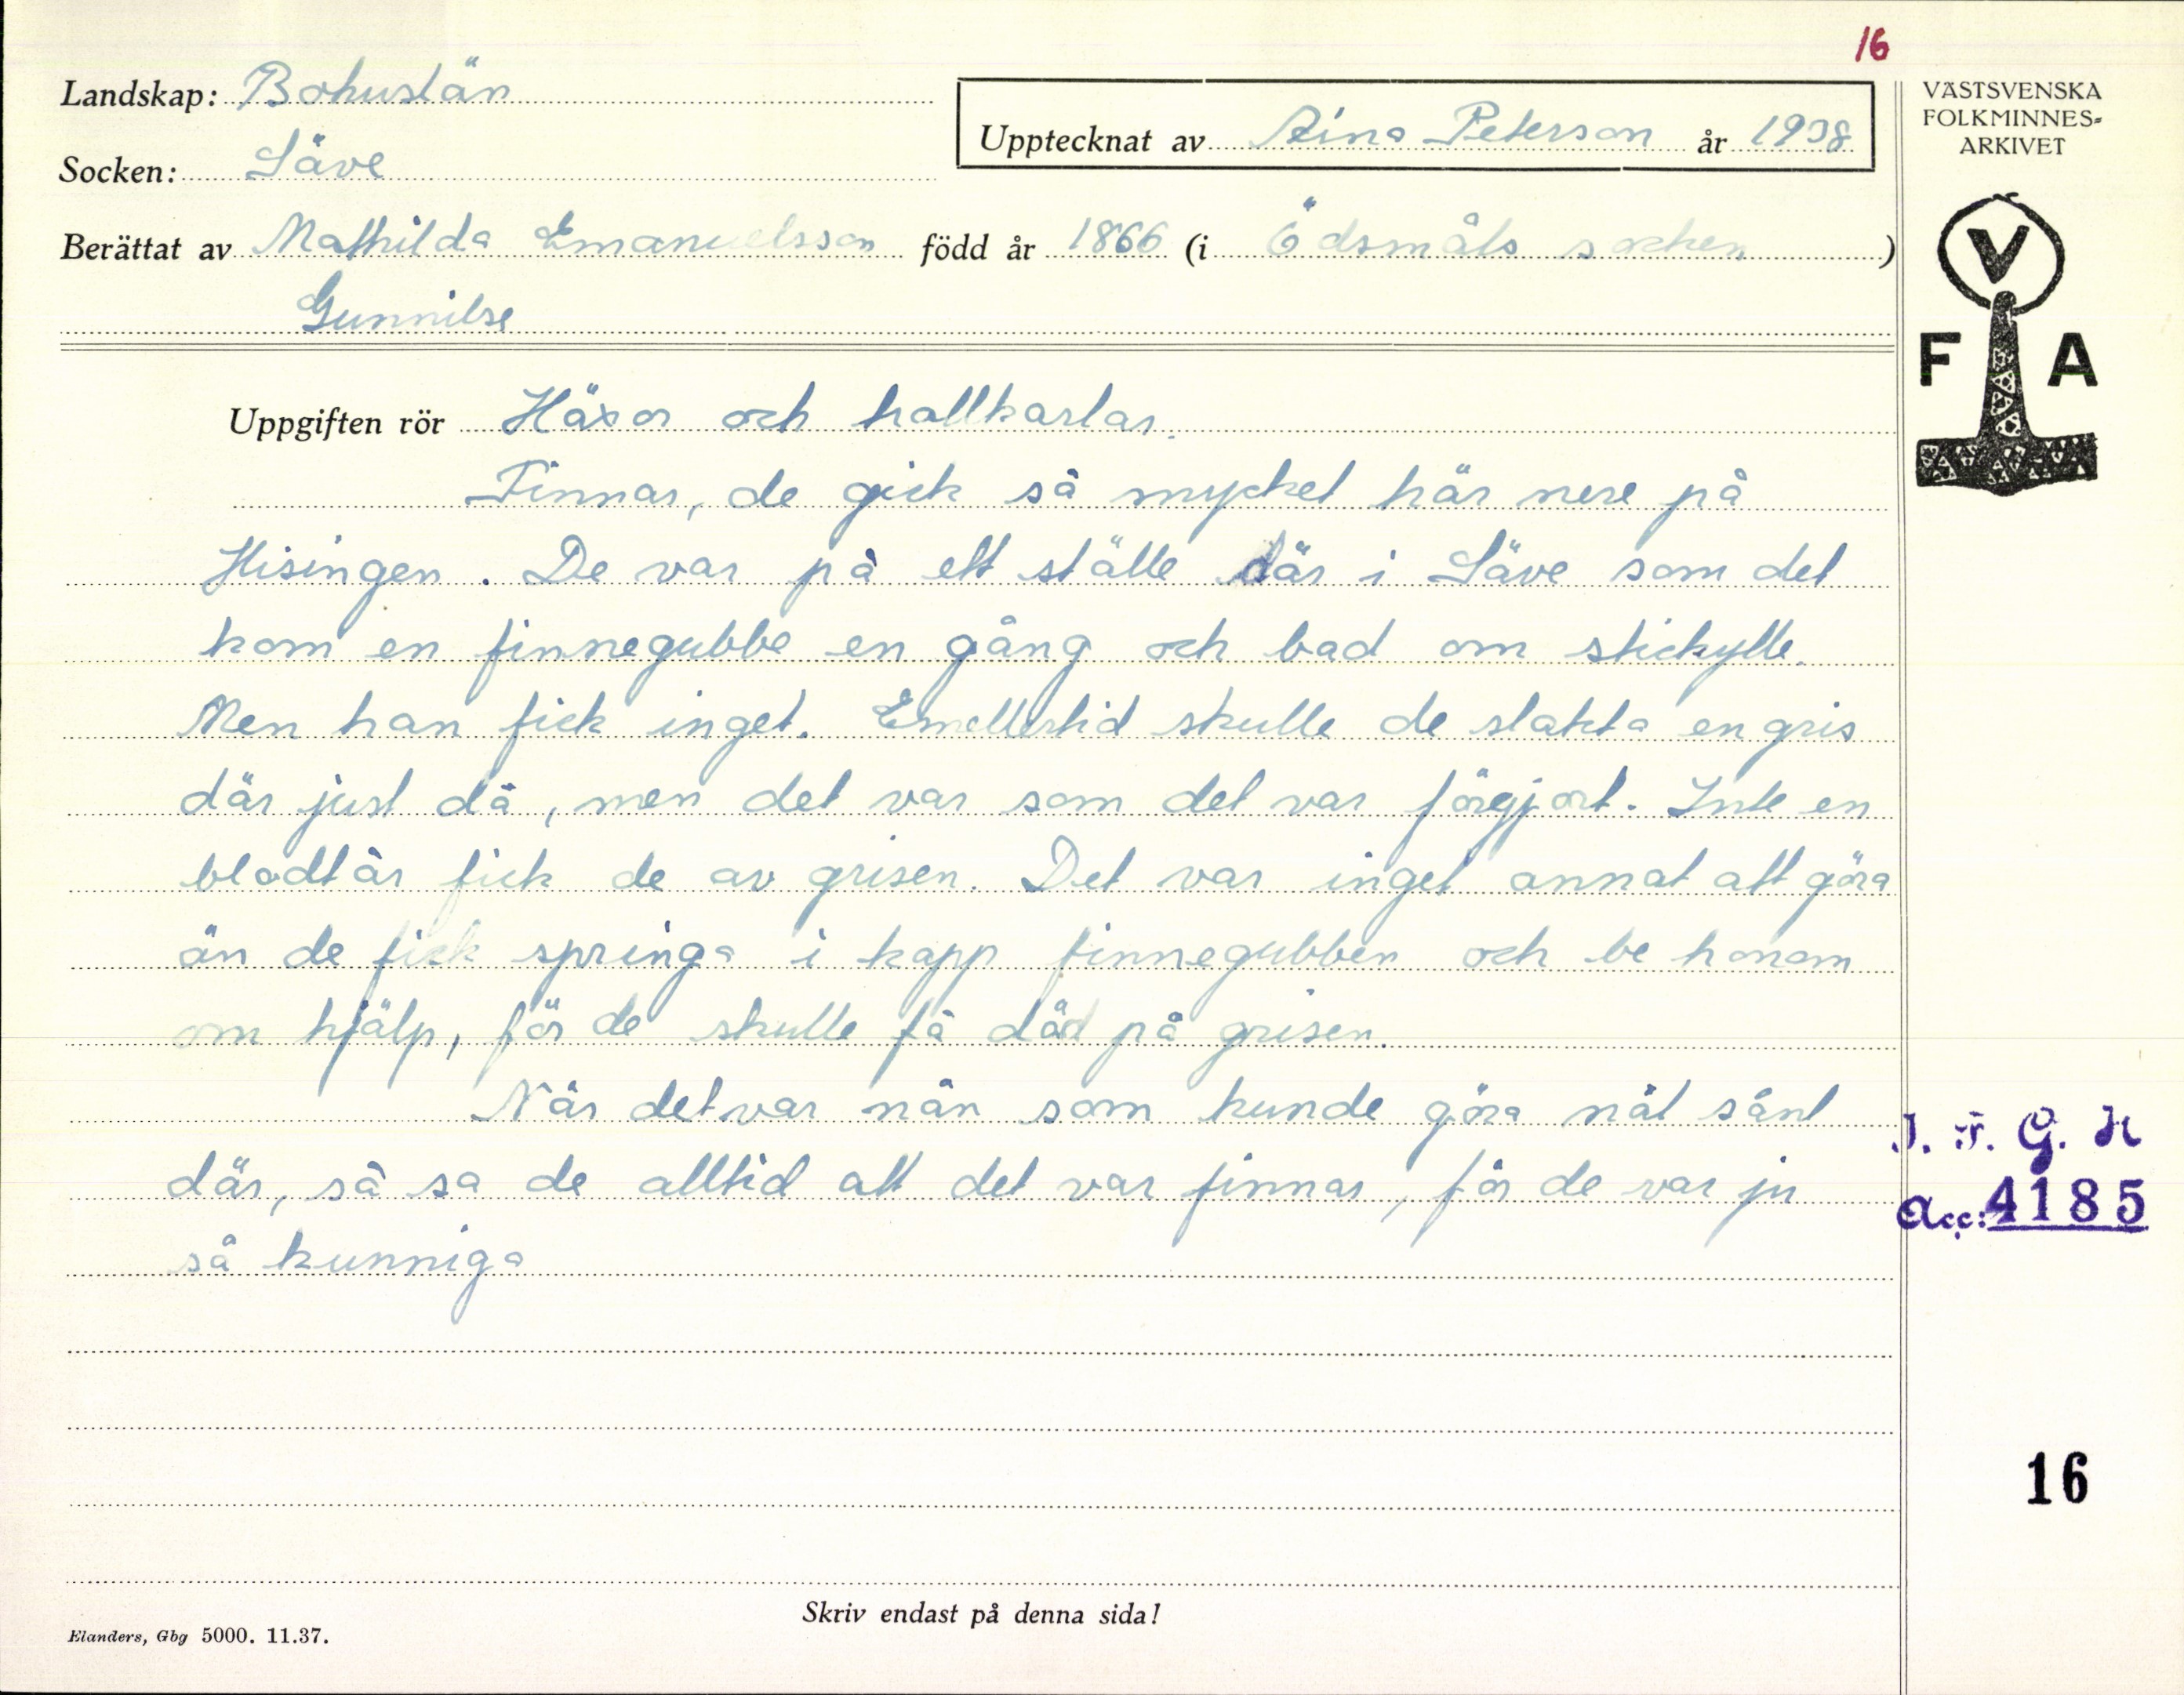 16
Landskap: Bohuslän
VÄSTSVENSKA
FOLKMINNES=
ARKIVET
Upptecknat av Aina Peterson år 1938
Socken: Säve
Berättat av Mathilda Emanuelsson född år 1866 (i Ödsmåls socken )
Gunnilse
V
F A
Uppgiften rör Häxor och hallkarlar.
Finnar, de gick så mycket här nere på
Hisingen. De var på ett ställe där i Säve som det
kom en finnegubbe en gång och bad om stickylle.
Men han fick inget. Emellertid skulle de slakta en gris
där just då, men det var som det var förgjort. Inte en
blodtår fick de av grisen. Det var inget annat att göra
än de fick springa i kapp finnegubben och be honom
om hjälp, för de skulle få död på grisen.
När det var nån som kunde göra nåt sånt
där, så sa de alltid att det var finnar, för de var ju
så kunniga
I. F. G. H
Acc: 4185
16
Skriv endast på denna sida!
Elanders, Gbg 5000. 11.37.